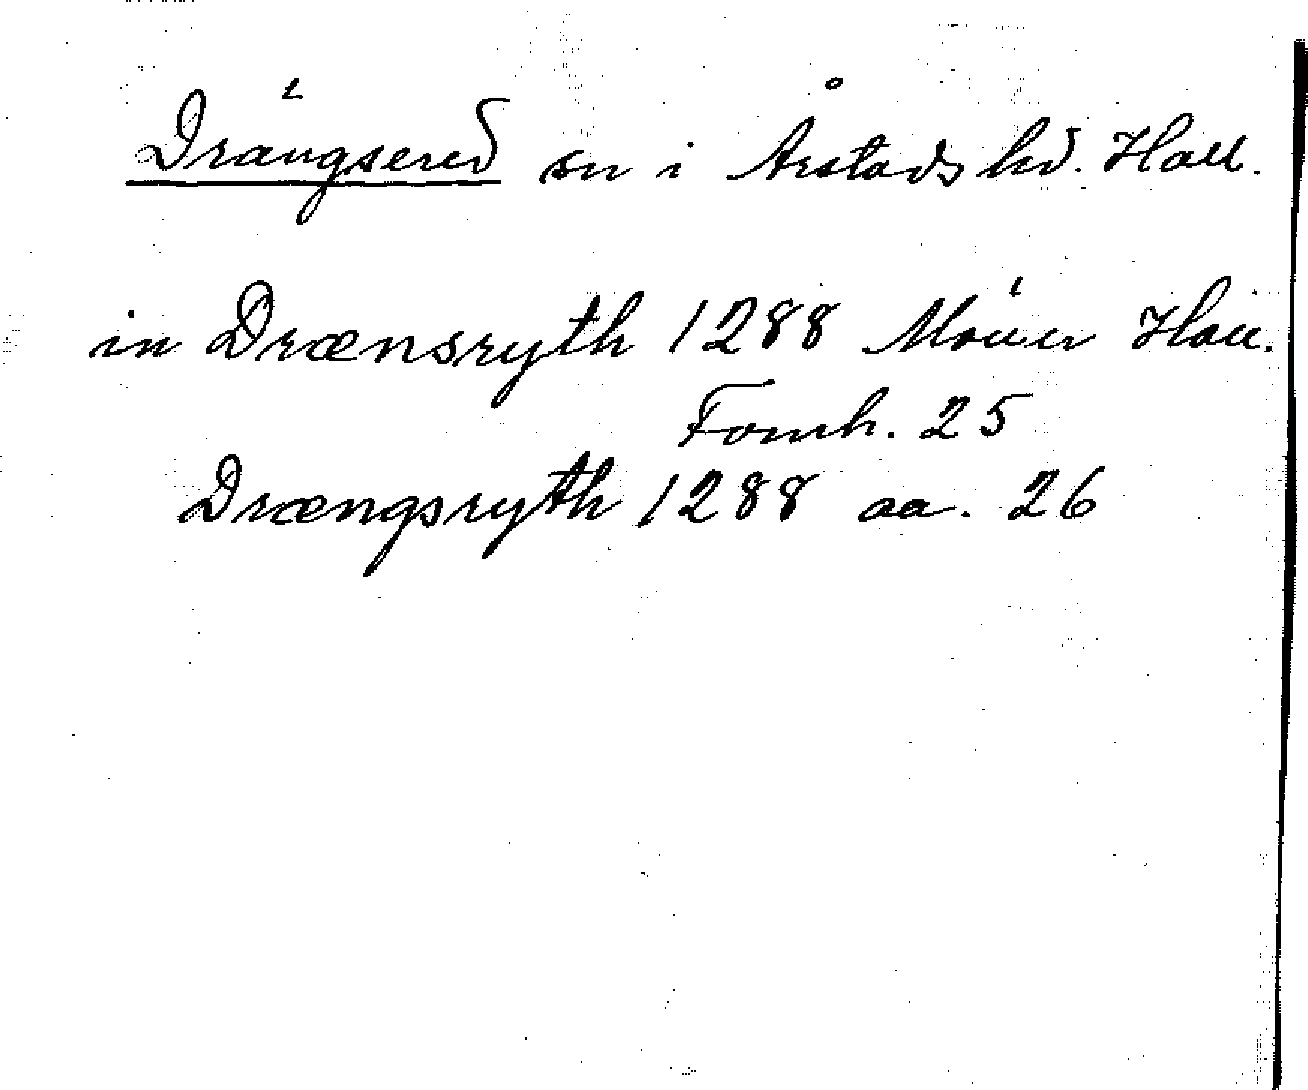 Drängsered sn i Årstads hd. Hall.
in Drænsryth 1288 Möller Hall.
Fornh. 25
Drængsryth 1288 aa. 26